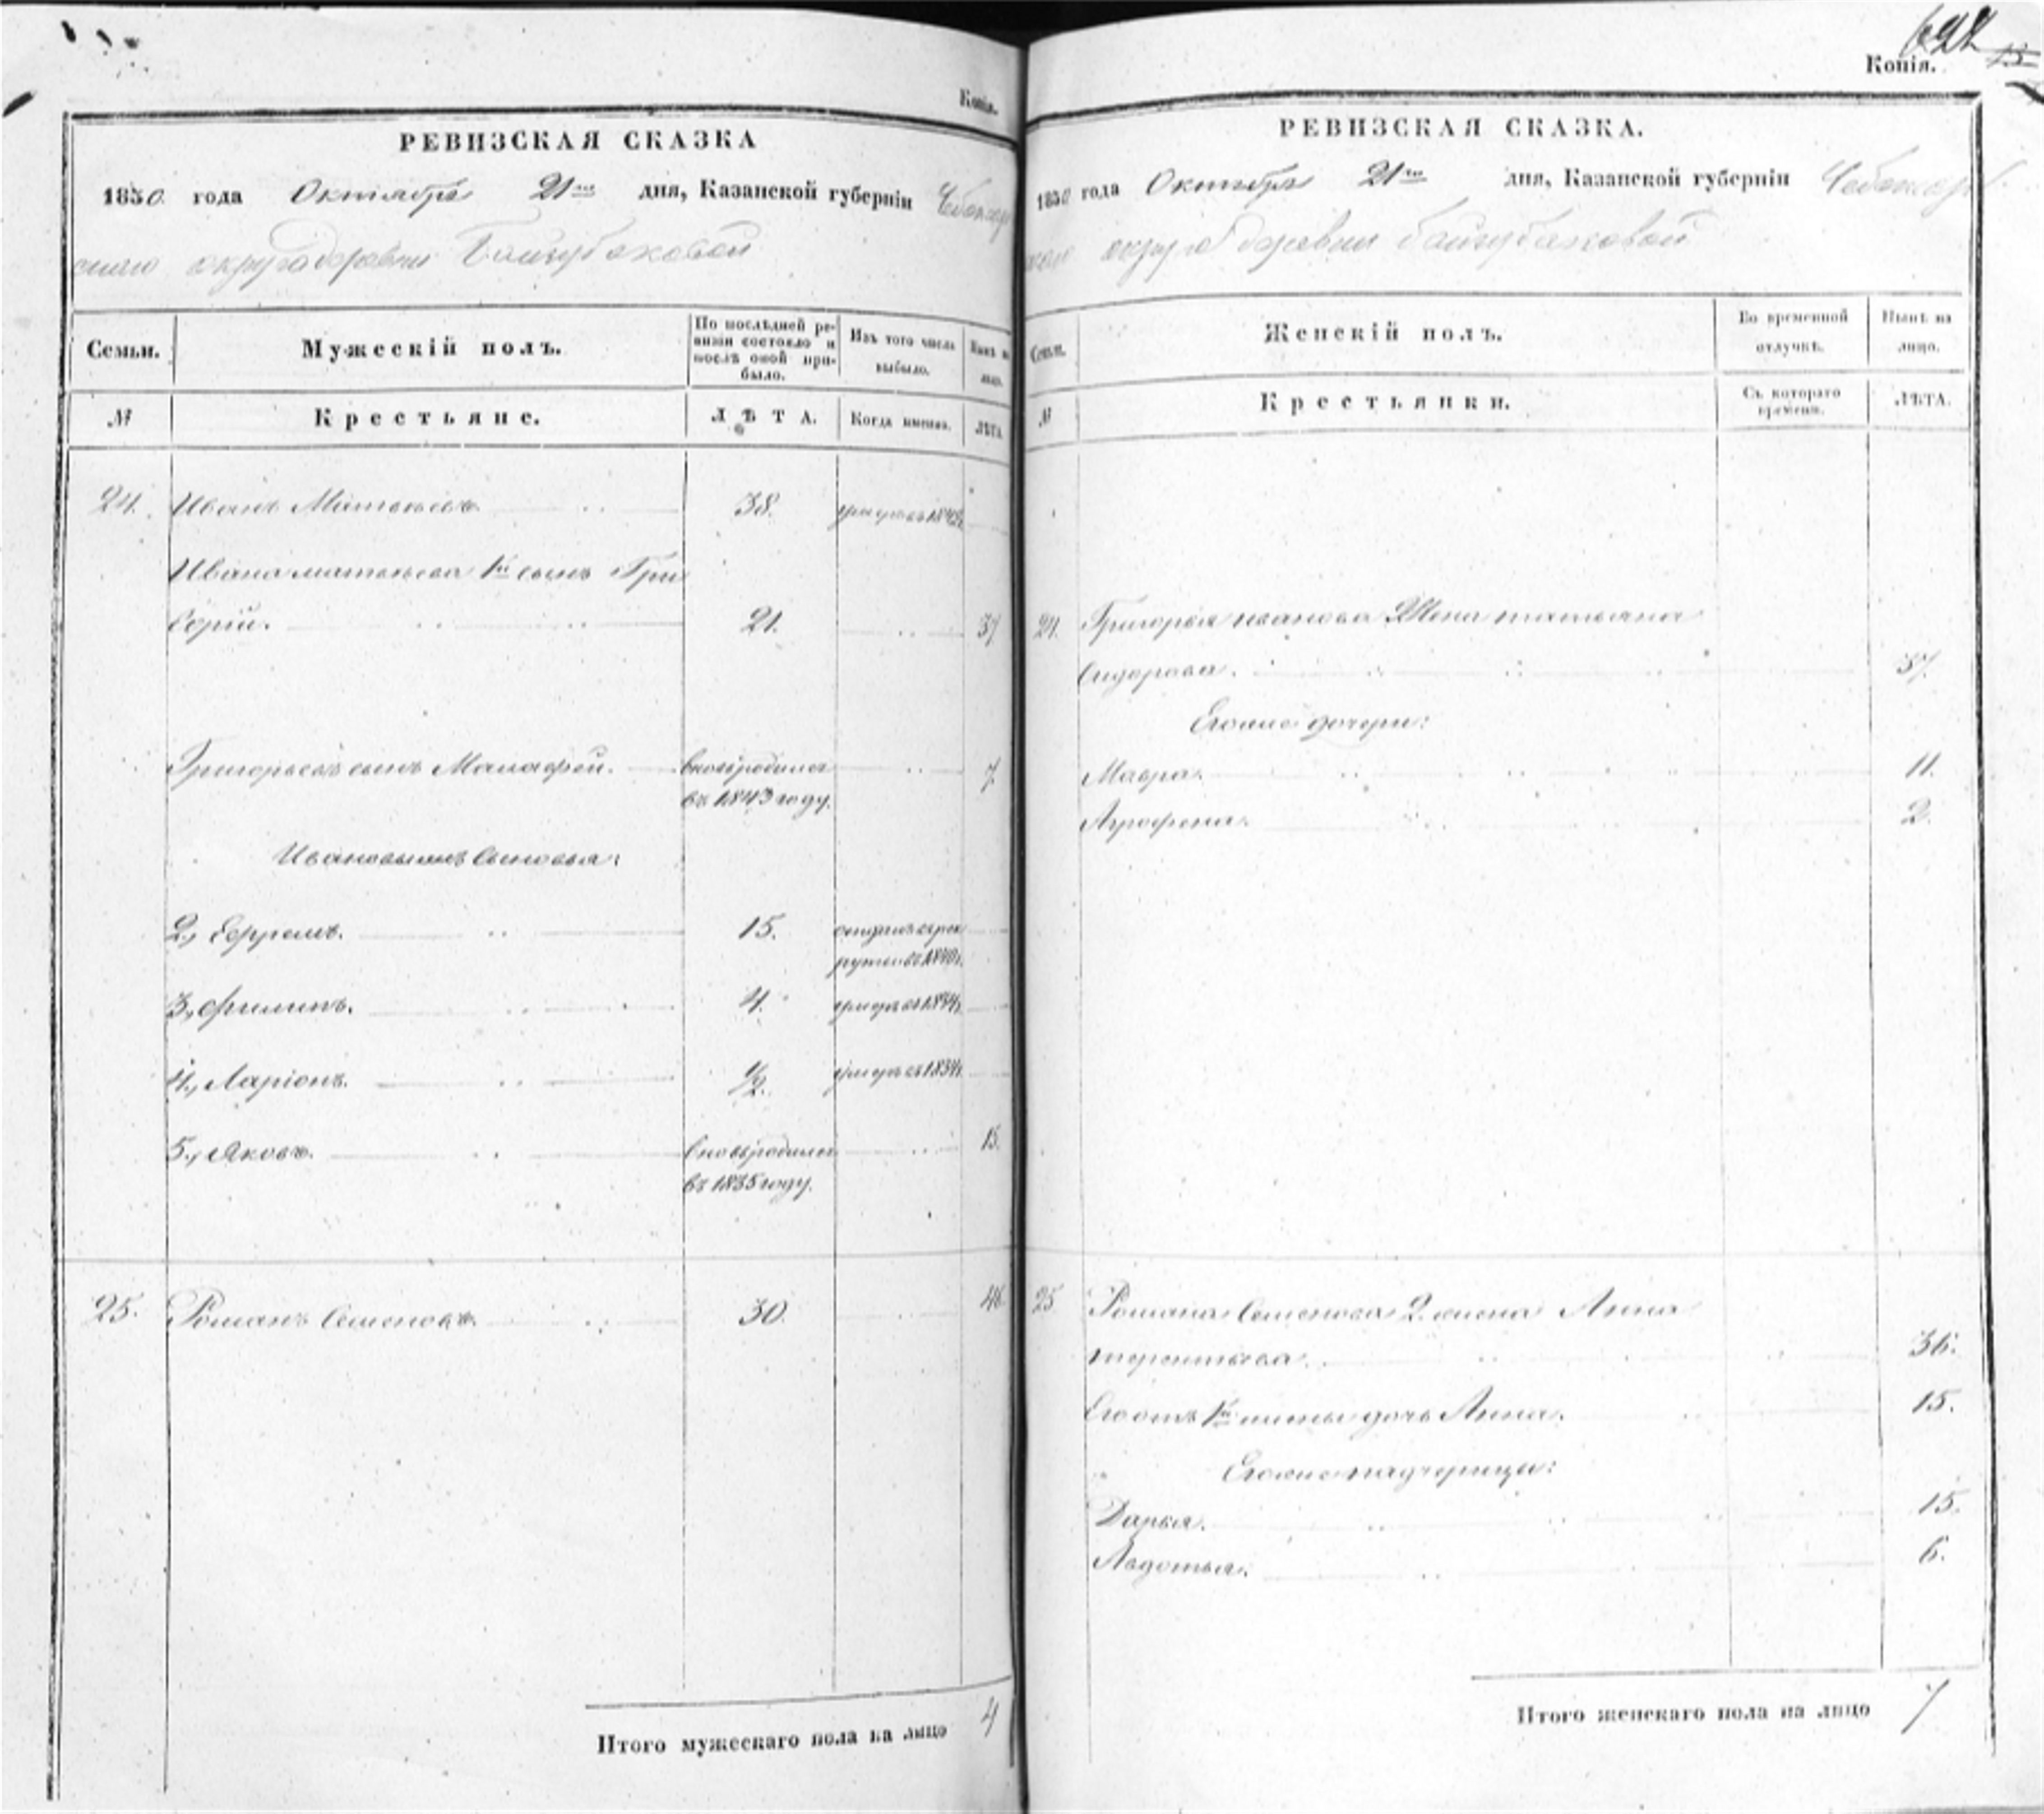 Копія.
РЕВИЗСКАЯ СКАЗКА
1850 года Октября 21го дня, Казанской губерніи Чебоксар
скаго округа деревни Байгубаковой
Семьи.
Мужескій полъ.
По послѣдней ре-
визіи состояло и
послѣ оной при-
было.
Изъ того числа
выбыло.
Нынѣ на
лицо.
№
Крестьяне.
ЛѢТА.
Когда именно.
ЛѢТА.
24. Иванъ Матвѣевъ 38. умеръ въ 1842г.
Ивана матвѣева 1й сынъ Гри
горій. 21. 37
Григорьевъ сынъ Малафей. вновь родился 7.
въ 1843 году.
Ивановы сыновья:
2, Ефремъ. 15. отданъ въ рек
руты въ 1840г.
3, Филипъ. 4. умеръ въ 1844г.
4, Ларіонъ. 1/2. умеръ въ 1834г.
5, Яковъ. вновь родился 15.
въ 1835 году.
25. Романъ Семеновъ. 30. 46
Итого мужескаго пола на лицо 4
Копія.
РЕВИЗСКАЯ СКАЗКА.
1850 года Октября 21го дня, Казанской губерніи Чебоксар
скаго округа деревни Байгубаковой
Семьи.
Женскій полъ.
Во временной
отлучкѣ.
Нынѣ на
лицо.
№
Крестьянки.
Съ котораго
времени.
ЛѢТА.
24. Григорья иванова Жена татьяна
Сидорова. 37.
Его же дочери:
Мавра. 11.
Агрофена. 2.
25 Романа Семенова 2. жена Анна
терентьева. 36.
Его отъ 1й жены дочь Анна. 15.
Его же падчерицы:
Дарья. 15.
Авдотья. 6.
Итого женскаго пола на лицо 7